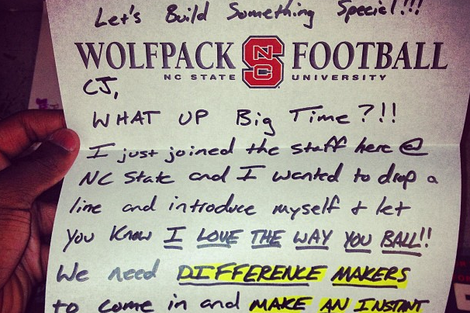 Let's Build Something Special!!!
WOLFPACK NC STATE FOOTBALL
NC STATE UNIVERSITY
CJ,
WHAT UP Big Time?!!
I just joined the staff here @
NC State and I wanted to drop a
line and introduce myself & let
you know I LOVE THE WAY YOU BALL!!
We need DIFFERENCE MAKERS
to come in and MAKE AN INSTANT